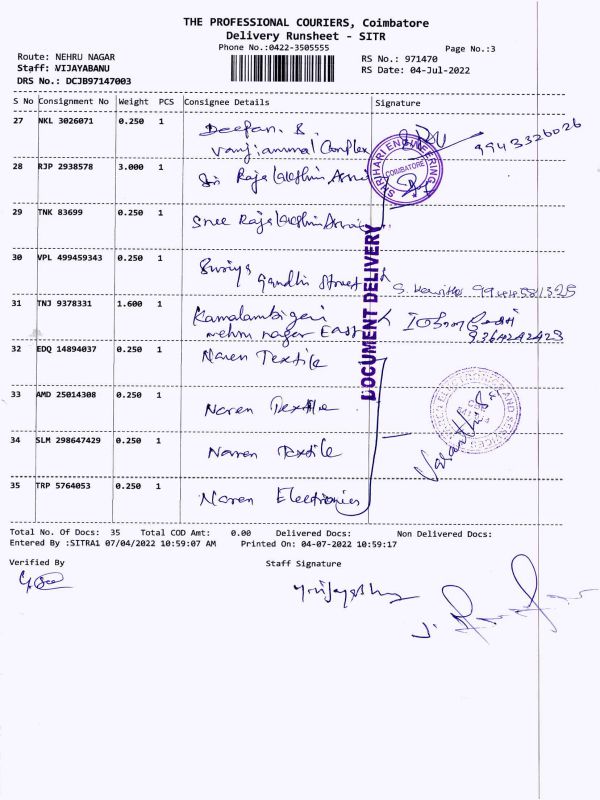 THE PROFESSIONAL COURIERS, Coimbatore
Delivery Runsheet - SITR
Phone No.:0422-3505555
Page No.:3
Route: NEHRU NAGAR
RS No.: 971470
Staff: VIJAYABANU
RS Date: 04-Jul-2022
DRS No.: DCJB97147003
S No Consignment No Weight PCS Consignee Details Signature
27 NKL 3026071 0.250 1 Deepan. B. 9943326026
Vanjiammal Complex
28 RJP 2938578 3.000 1 Sri Rajalakshmi
SHRIHARI ENGINEERING
COIMBATORE
29 TNK 83699 0.250 1 Sree Rajalakshmi
30 VPL 499459343 0.250 1 Suriya
Gandhi Street S. Kavitha
31 TNJ 9378331 1.600 1 Kamalambigai
nehru nagar East 9364242423
DOCUMENT DELIVERY
32 EDQ 14894037 0.250 1 Naren Textile
33 AMD 25014308 0.250 1 Naren Textile
34 SLM 298647429 0.250 1 Naren Textile
35 TRP 5764053 0.250 1 Naren Electronics
Total No. Of Docs: 35 Total COD Amt: 0.00 Delivered Docs: Non Delivered Docs:
Entered By :SITRA1 07/04/2022 10:59:07 AM Printed On: 04-07-2022 10:59:17
Verified By Staff Signature